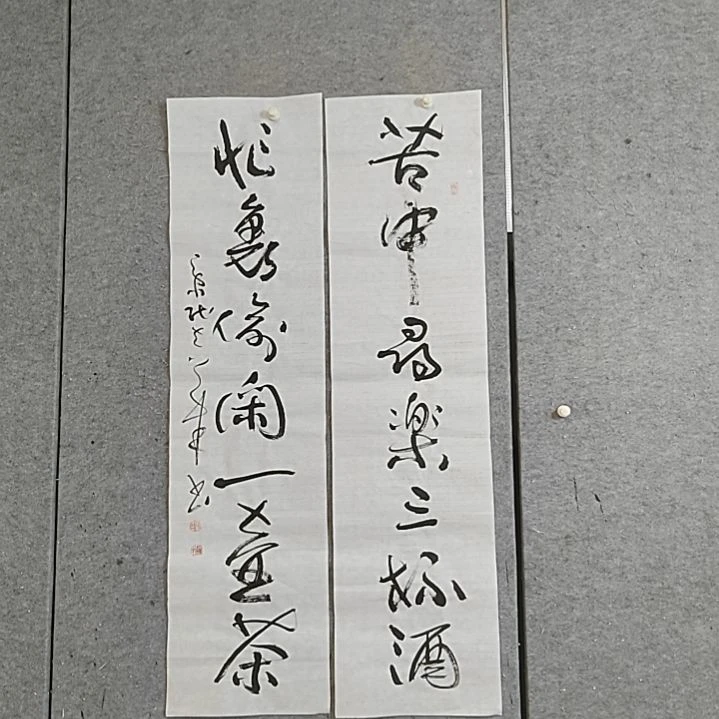 苦中尋楽三杯酒
忙裏偷閑一壺茶